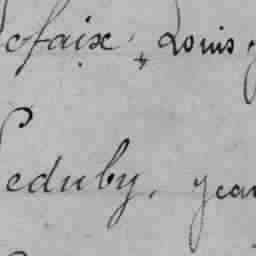 ofaix, Louis
Leduby, Jean